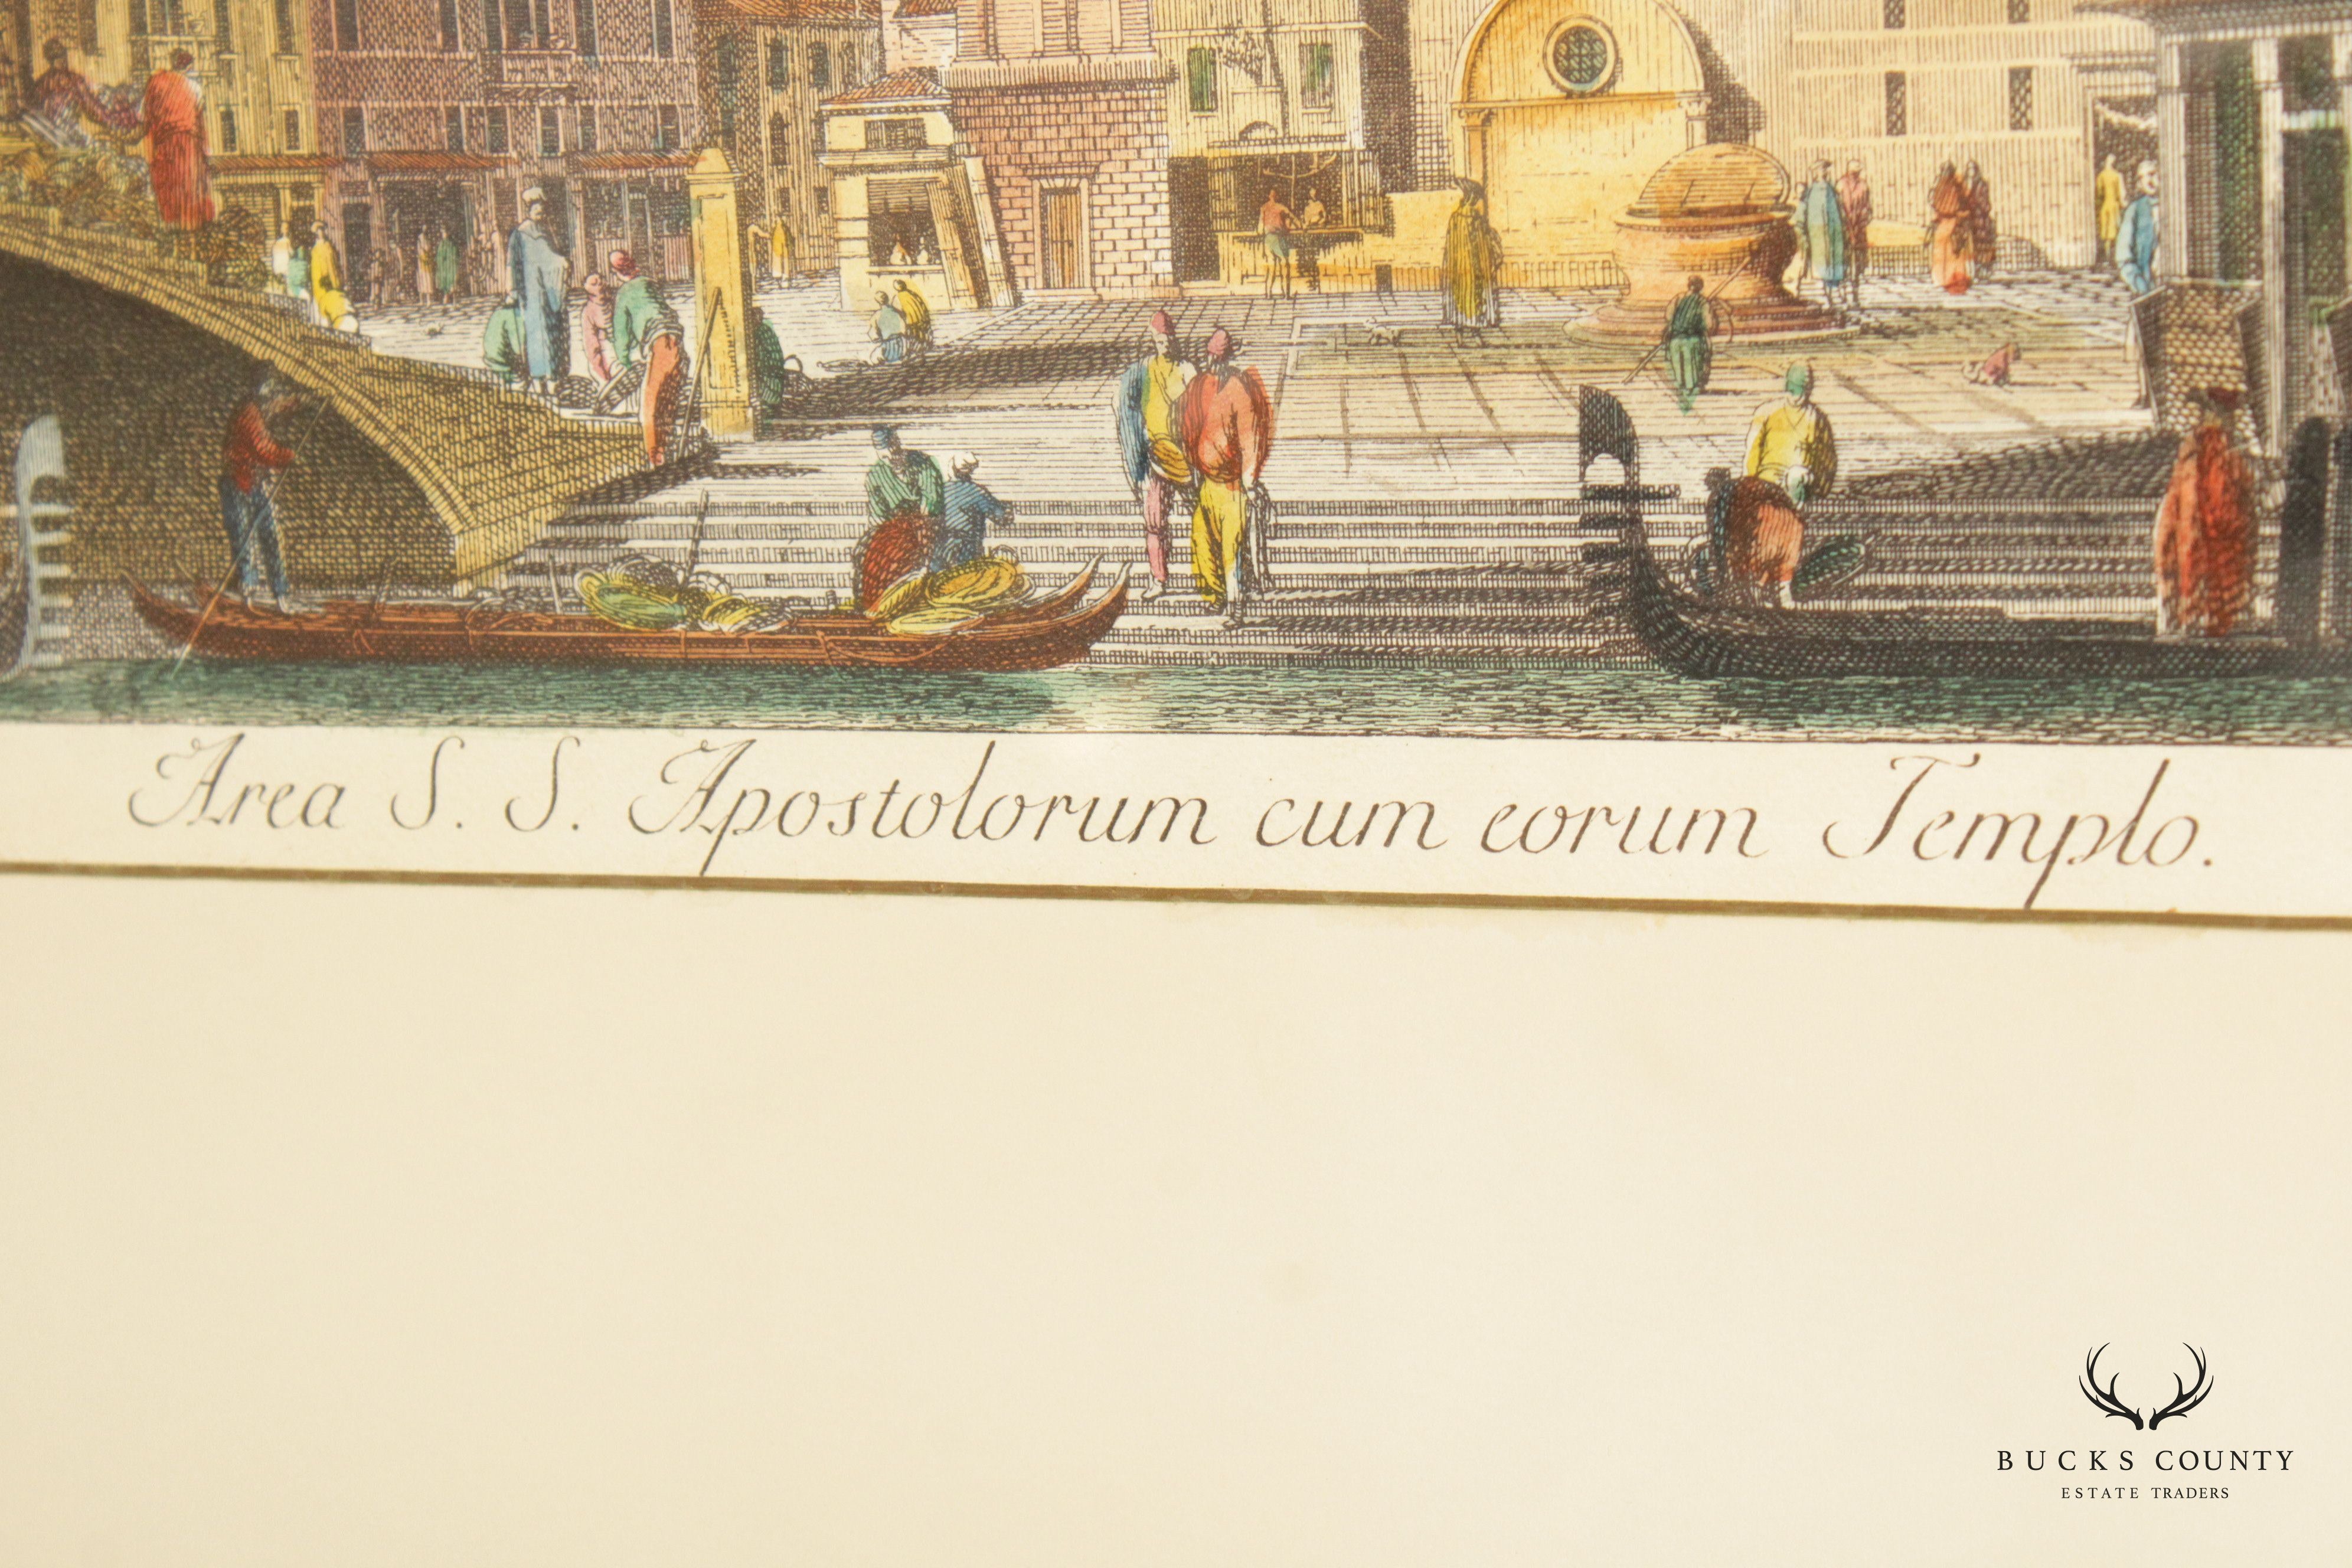 Area S. S. Apostolorum cum eorum Templo.
BUCKS COUNTY
ESTATE TRADERS